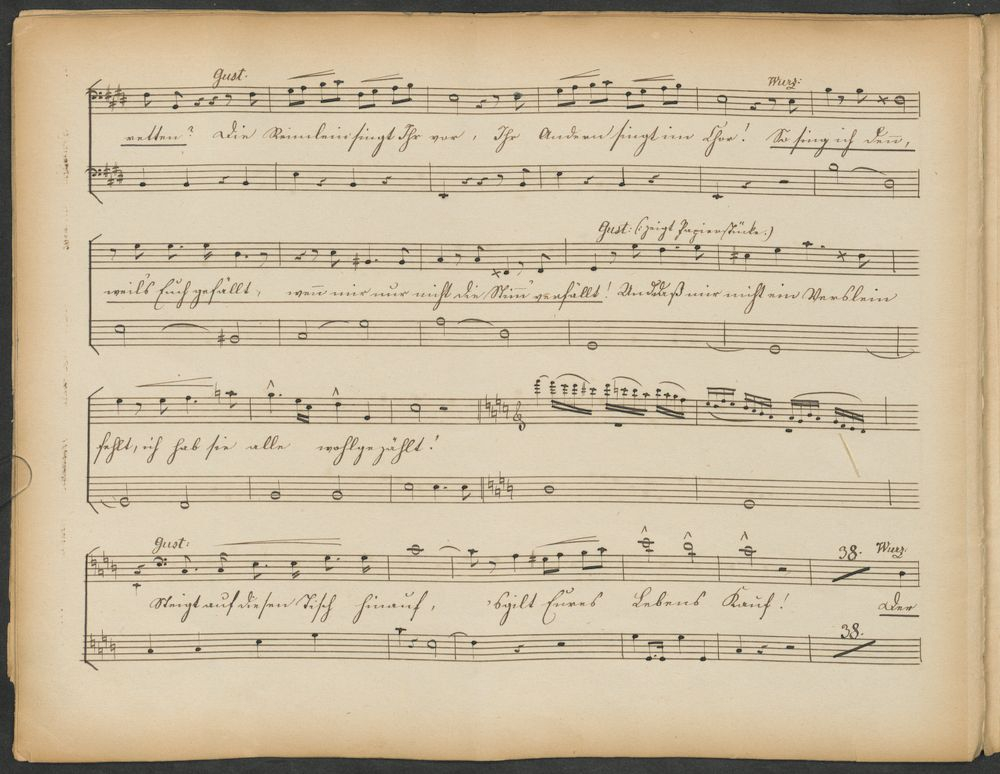 Gust: Wurz:
retten? Die Reimlein singt Ihr vor, Ihr Andern singt im Chor! So sing ich denn̄,
Gust: (: zeigt Papierstücke.)
weils Euch gefällt, wen̄ mir nur nicht die Stim̄ verfällt! Und daß mir nicht ein Verslein
fehlt, ich hab sie alle wohlgezählt!
Gust: 38. Wurz:
Steigt auf diesen Tisch hinauf, 's gilt Eures Lebens Kauf! Der
38.